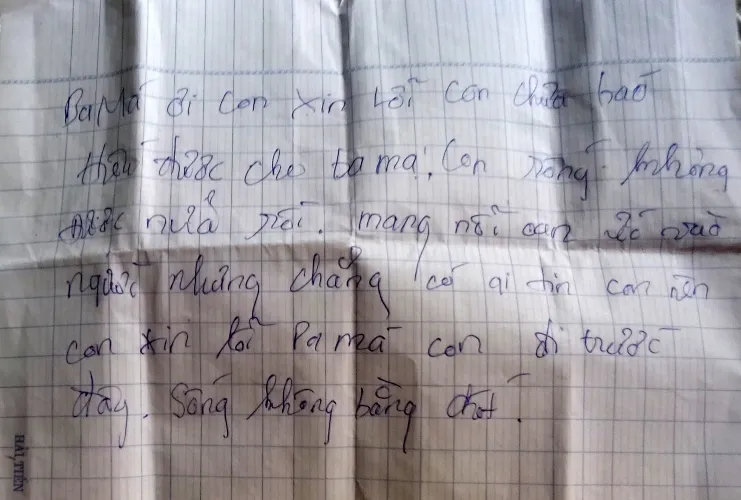 Ba Má ơi con xin lỗi con chưa báo
hiếu được cho ba má. Con sống không
được nữa rồi. mang nỗi oan ức vào
người nhưng chẳng có ai tin con nên
con xin lỗi Ba má con đi trước
đây. Sống không bằng chết.
HẢI TIẾN